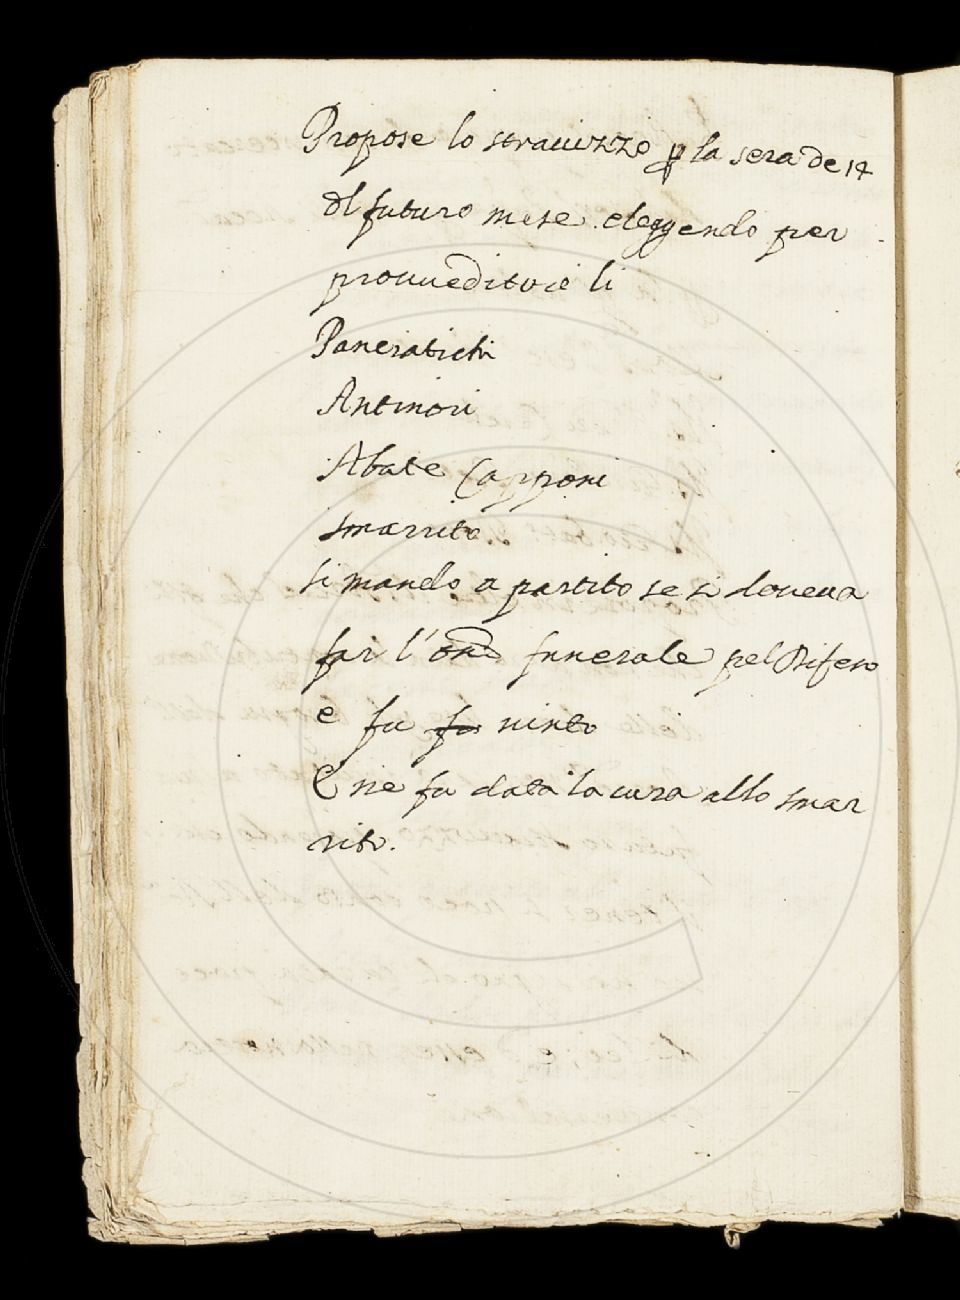 Propose lo stravizzo p la sera de 14
dl futuro mese eleggendo per
provveditori li
Panciatichi
Antinori
Abate Capponi
smarrito
si mando a partito se si doveva
far l' funerale pel Rifero
e fu fu vinto
E ne fu data la cura allo smar
rito.